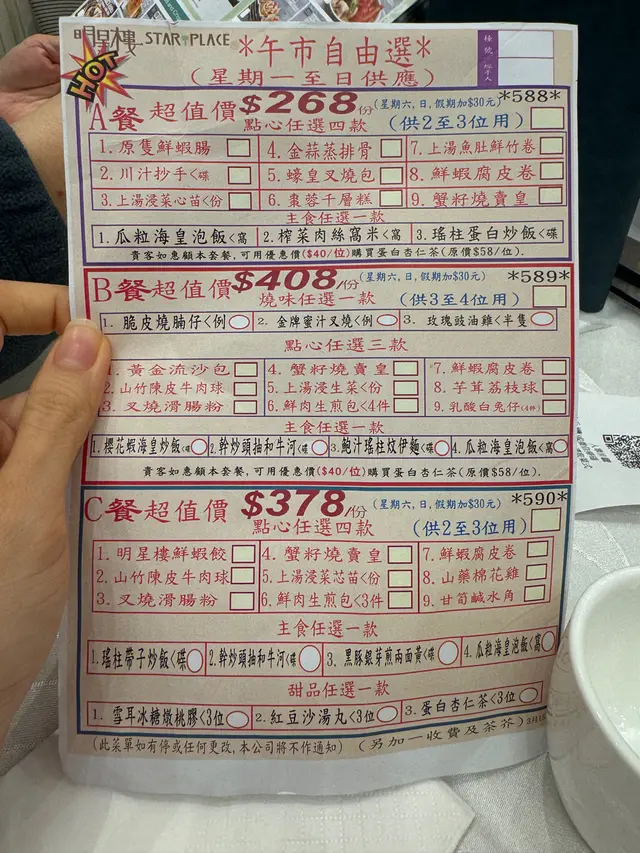 明星樓 STAR PLACE
*午市自由選*
(星期一至日供應)
檯號
經手人
HOT
A餐超值價$268/份(星期六,日,假期加$30元) *588*
點心任選四款 (供2至3位用)
1. 原隻鮮蝦腸 4. 金蒜蒸排骨 7. 上湯魚肚鮮竹卷
2. 川汁抄手<碟 5. 蠔皇叉燒包 8. 鮮蝦腐皮卷
3. 上湯浸菜心苗<份 6. 棗蓉千層糕 9. 蟹籽燒賣皇
主食任選一款
1. 瓜粒海皇泡飯<窩 2. 榨菜肉絲窩米<窩 3. 瑤柱蛋白炒飯<碟
貴客如惠顧本套餐,可用優惠價($40/位)購買蛋白杏仁茶(原價$58/位).
B餐超值價$408/份(星期六,日,假期加$30元) *589*
燒味任選一款 (供3至4位用)
1. 脆皮燒腩仔<例 2. 金牌蜜汁叉燒<例 3. 玫瑰豉油雞<半隻
點心任選三款
1. 黃金流沙包 4. 蟹籽燒賣皇 7. 鮮蝦腐皮卷
2. 山竹陳皮牛肉球 5. 上湯浸生菜<份 8. 芋茸荔枝球
3. 叉燒滑腸粉 6. 鮮肉生煎包<4件 9. 乳酸白兔仔(4件)
主食任選一款
1. 櫻花蝦海皇炒飯<碟 2. 幹炒頭抽和牛河<碟 3. 鮑汁瑤柱炆伊麵<碟 4. 瓜粒海皇泡飯<窩
貴客如惠顧本套餐,可用優惠價($40/位)購買蛋白杏仁茶(原價$58/位).
C餐超值價$378/份(星期六,日,假期加$30元) *590*
點心任選四款 (供2至3位用)
1. 明星樓鮮蝦餃 4. 蟹籽燒賣皇 7. 鮮蝦腐皮卷
2. 山竹陳皮牛肉球 5. 上湯浸菜芯苗<份 8. 山藥棉花雞
3. 叉燒滑腸粉 6. 鮮肉生煎包<3件 9. 甘筍鹹水角
主食任選一款
1. 瑤柱帶子炒飯<碟 2. 幹炒頭抽和牛河<碟 3. 黑豚銀芽煎兩面黃<碟 4. 瓜粒海皇泡飯<窩
甜品任選一款
1. 雪耳冰糖燉桃膠<3位 2. 紅豆沙湯丸<3位 3. 蛋白杏仁茶<3位
(此菜單如有停或任何更改,本公司將不作通知) (另加一收費及茶芥)